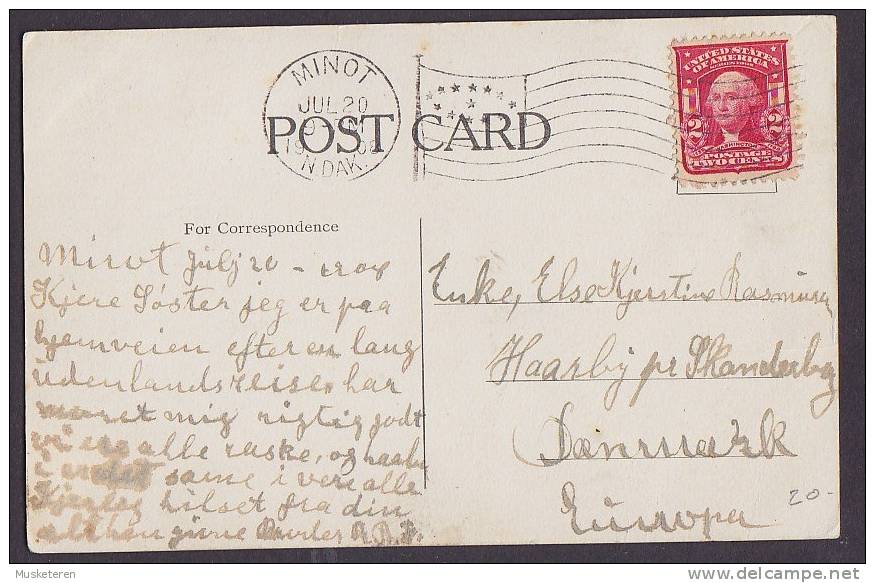 MINOT
JUL 20
N. DAK.
POST CARD
UNITED STATES
OF AMERICA
2 2
POSTAGE
TWO CENTS
For Correspondence
Minot July 20 -
Kjere Søster jeg er paa
hjemveien efter en lang
udenlandsreise, har
moret mig rigtig godt
vi ere alle raske, og haaber
i same i vere alle
Kjerlig hilset fra din
Enke, Else Kjerstine Rasmusen
Haarby pr Skanderborg
Danmark
Europa
20-
Musketeren
delcampe.net